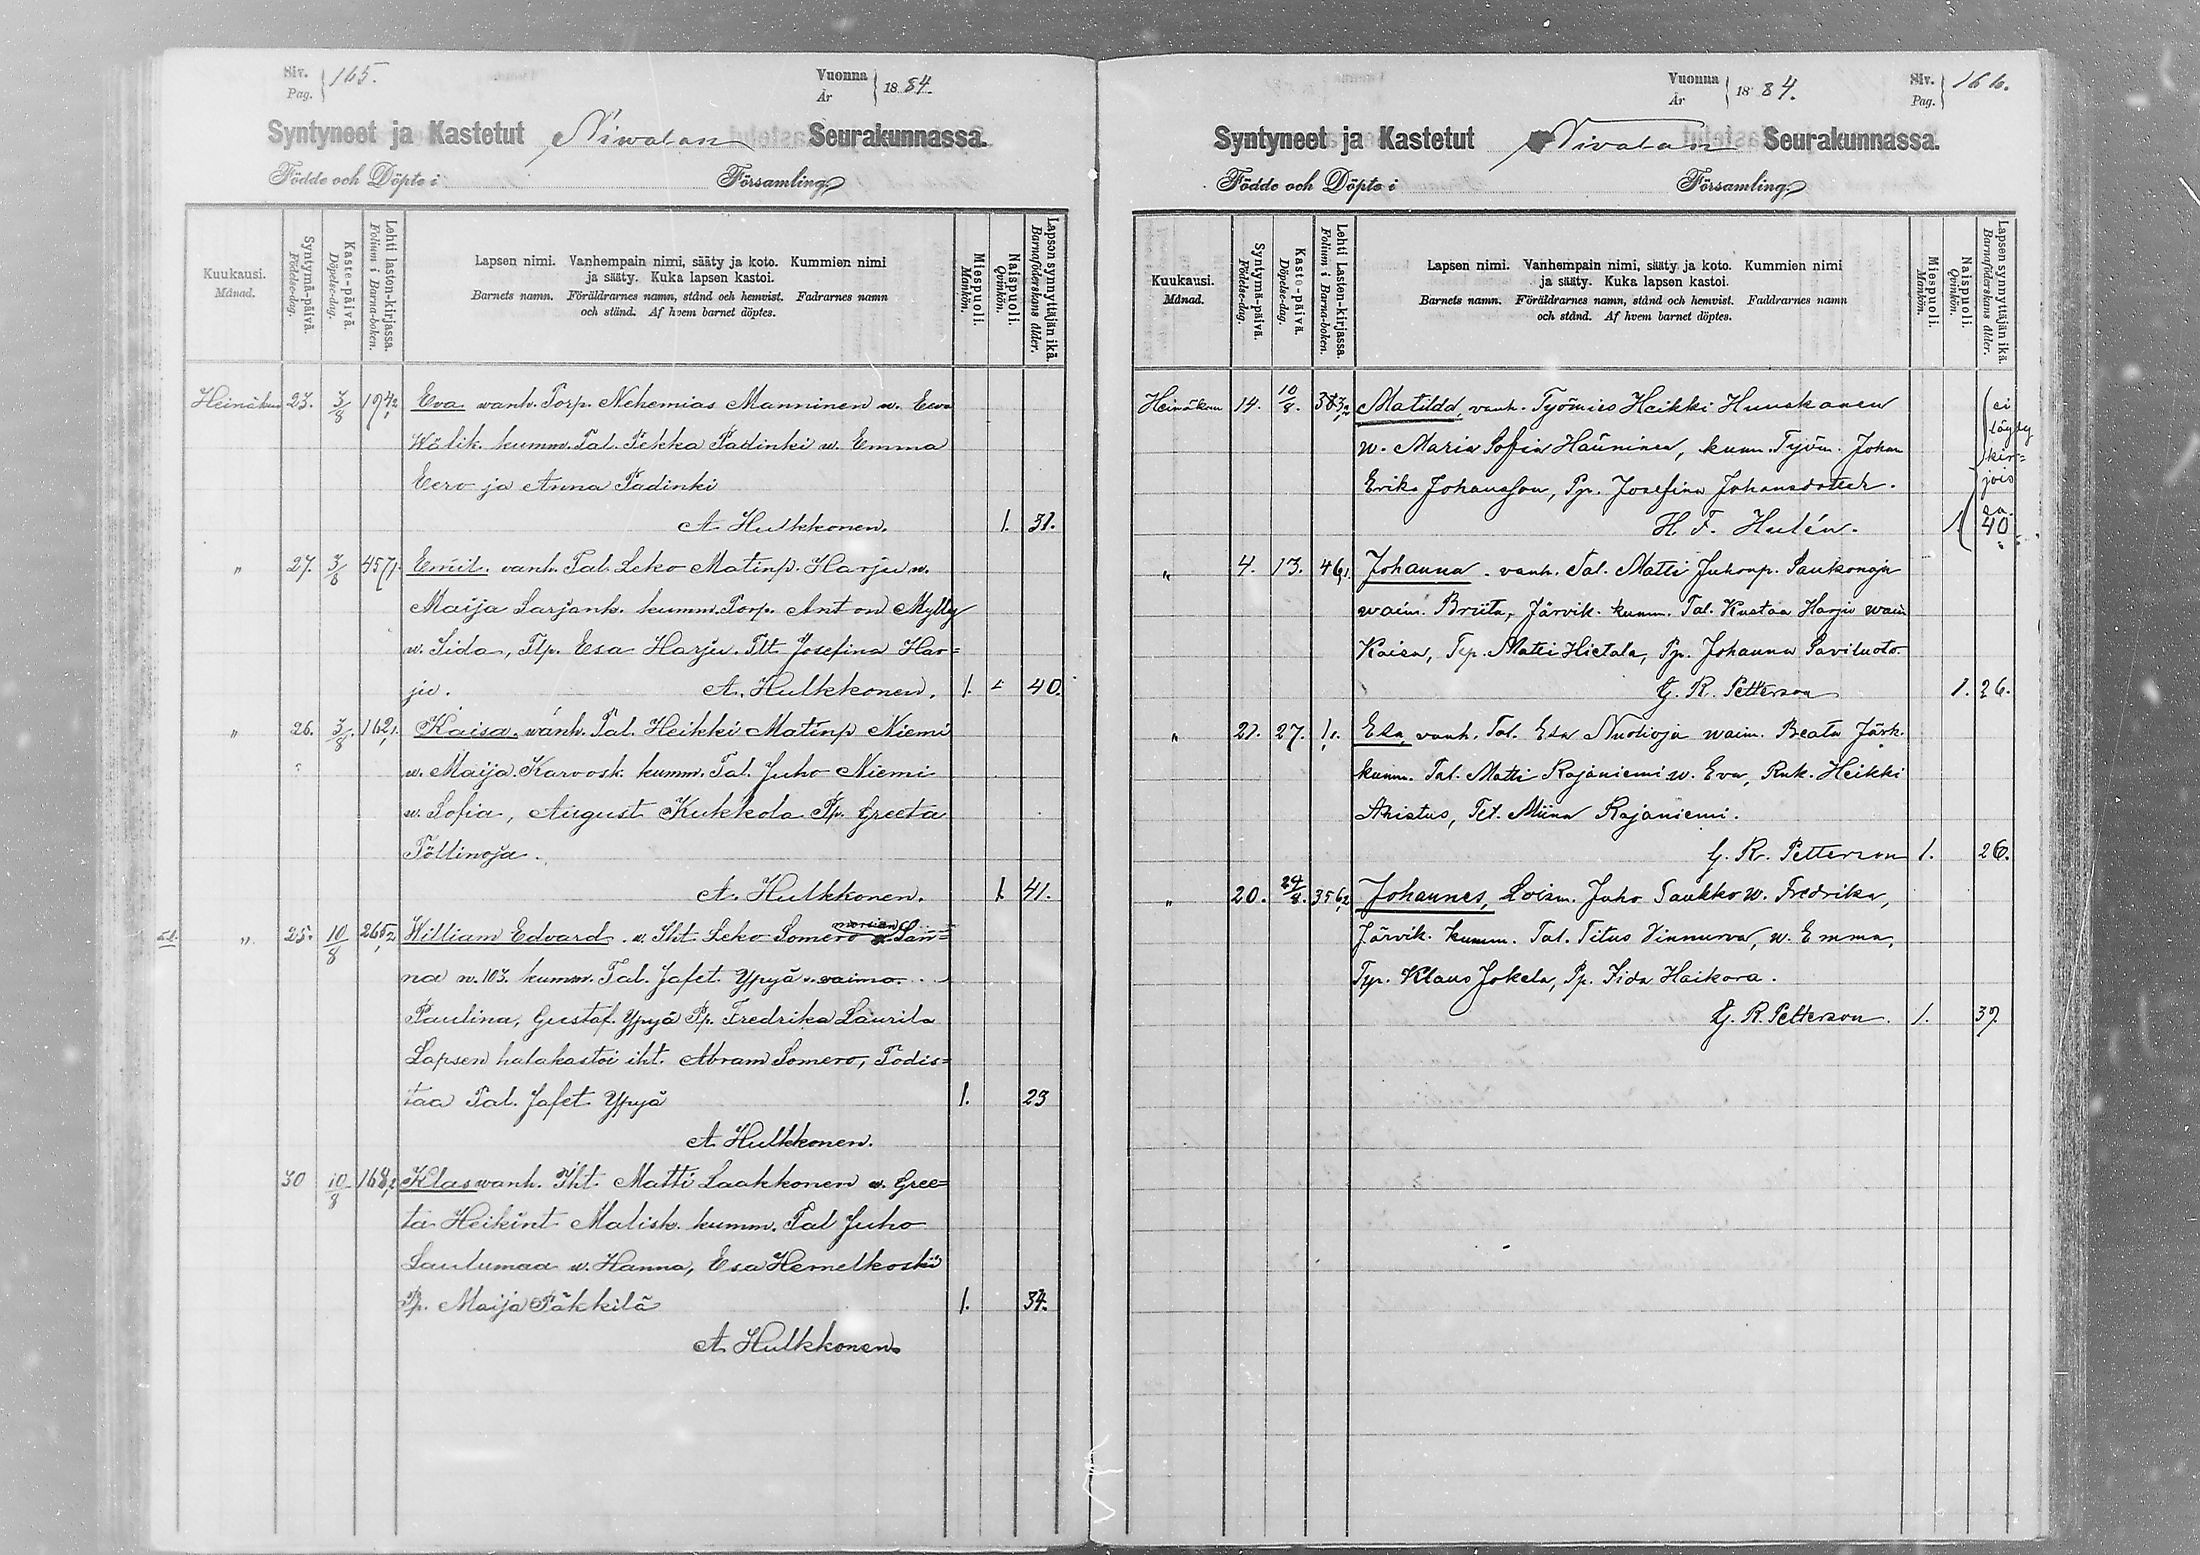 Siv. Pag. 165.
Vuonna År 1884.
Syntyneet ja Kastetut Niwalan Seurakunnassa.
Födde och Döpte i Församling
Kuukausi. Månad.
Syntymä-päivä. Födelse-dag.
Kaste-päivä. Döpelse-dag.
Lehti lasten-kirjassa. Folium i Barna-boken.
Lapsen nimi. Vanhempain nimi, sääty ja koto. Kummien nimi
ja sääty. Kuka lapsen kastoi.
Barnets namn. Föräldrarnes namn, stånd och hemvist. Fadrarnes namn
och stånd. Af hvem barnet döptes.
Miespuoli. Mankön.
Naispuoli. Qvinkön.
Lapsen synnyttäjän ikä. Barnaföderskans ålder.
Heinäkuu 23. 3/8 194,2 Eva wanh. Torp. Nehemias Manninen w. Eewa
Wälik. kumm. Tal. Pekka Padinki w. Emma
Eero ja Anna Padinki
A. Hulkkonen. 1. 31.
" 27. 3/8 457,1. Emil. vanh. Tal. Leko Matinp. Harju w.
Maija Sarjank. kumm. Torp. Anton Mylly
w. Iida, Tlp. Esa Harju. Tlt. Josefina Har=
ju. A. Hulkkonen. 1. 40.
" 26. 3/8. 162,1. Kaisa. wanh. Tal. Heikki Matinp Niemi
w. Maija Karvosk. kumm. Tal. Juho Niemi
w. Sofia, August Kukkola Pp. Greeta
Töllinoja.
A. Hulkkonen. 1. 41.
". 25. 10/8 265,2 William Edvard. w. Iht. Leko Somero morsian San=
na n. 103. kumm. Tal. Jafet Ypyä vaimo
Paulina, Gustaf. Ypyä Pp. Fredrika Laurila
Lapsen hätäkastoi iht. Abram Somero, Todis=
taa Tal. Jafet Ypyä 1. 23
A. Hulkkonen.
30 10/8 168,2 Klas wanh. Iht. Matti Laakkonen w. Gree=
ta Heikint Malisk. kumm. Tal Juho
Laulumaa w. Hanna, Esa Hemelkoski
Pp. Maija Päkkilä 1. 34.
A. Hulkkonen.
Vuonna År 1884.
Siv. Pag. 166.
Syntyneet ja Kastetut Nivalan Seurakunnassa.
Födde och Döpte i Församling
Kuukausi. Månad.
Syntymä-päivä. Födelse-dag.
Kaste-päivä. Döpelse-dag.
Lehti Lasten-kirjassa. Folium i Barna-boken.
Lapsen nimi. Vanhempain nimi, sääty ja koto. Kummien nimi
ja sääty. Kuka lapsen kastoi.
Barnets namn. Föräldrarnes namn, stånd och hemvist. Faddrarnes namn
och stånd. Af hvem barnet döptes.
Miespuoli. Mankön.
Naispuoli. Qvinkön.
Lapsen synnyttäjän ikä. Barnaföderskans ålder.
Heinäkuu 14. 10/8. 383,2 Matilda, vanh. Työmies Heikki Huuskonen ei
w. Maria Sofia Hauninen, kum. Työm. Johan löydy kir=
Erik Johansson, Pp. Josefina Johansdotter. jois
H. F. Hulén. sa. 1. 40
" 4. 13. 46,1. Johanna. vanh. Tal. Matti Juhonp. Saukonoja
waim. Briita, Järvik. kumm. Tal. Kustaa Harju waim
Kaisa, Tlp. Matti Hietala, Pp. Johanna Saviluoto
G. R. Petterson 1. 26.
" 21. 27. 1,1. Esa, vanh. Tal. Esa Nuolioja waim. Beata Järk.
kumm. Tal. Matti Rajaniemi w. Eva, Rnk. Heikki
Ahistus, Tlt. Miina Rajaniemi.
G. R. Petterson 1. 26.
" 20. 24/8. 356,2 Johannes, Loism. Juho Saukko w. Fredrika,
Järvik. kumm. Tal. Titus Vinnurva, w. Emma,
Typ. Klaus Jokela, Pp. Iida Haikora.
G. R. Petterson. 1. 37.